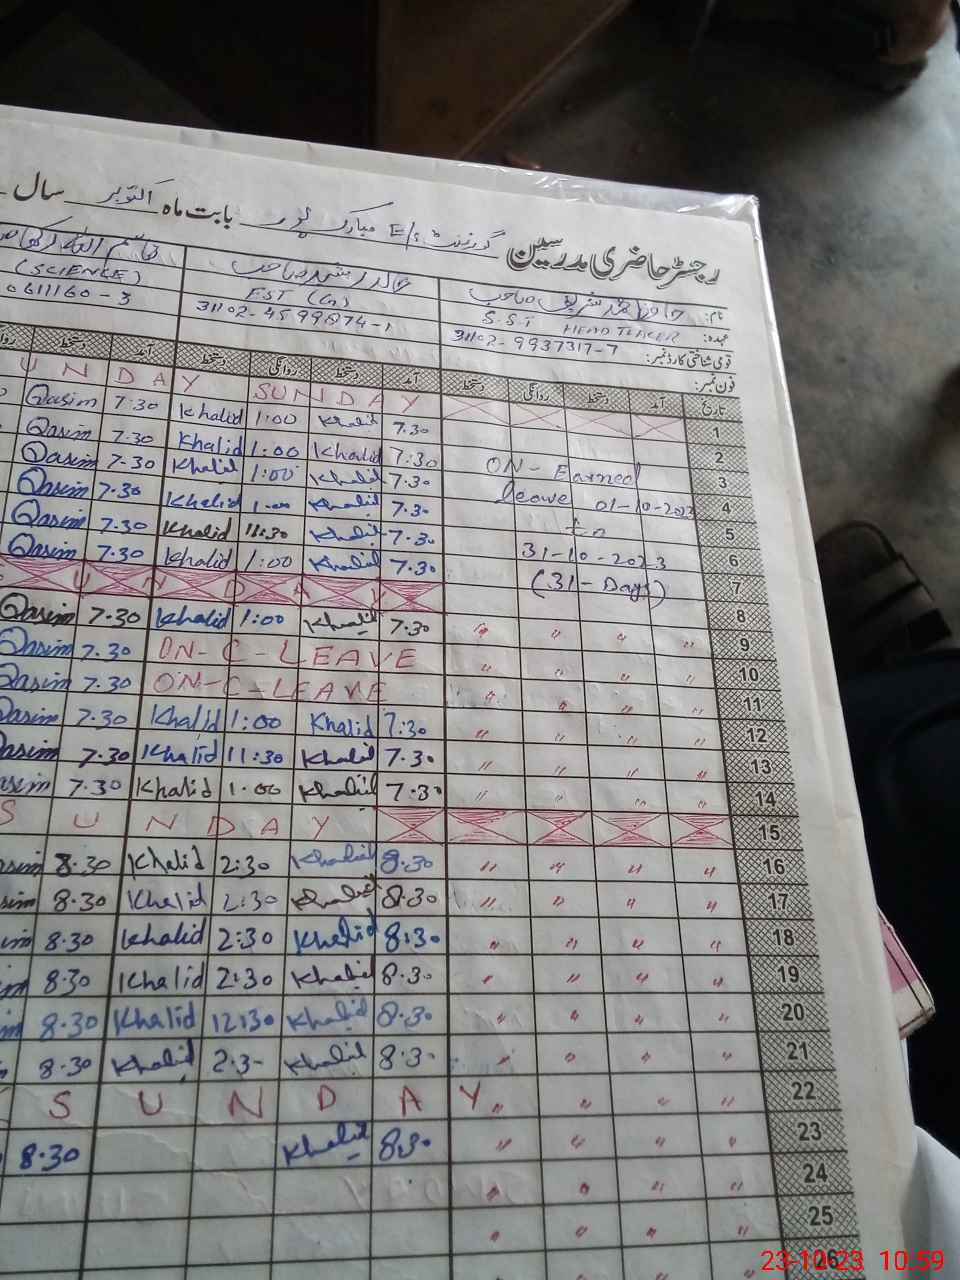 رجسٹر حاضری مدرسین گورنمنٹ E/S مبارک پور بابت ماہ اکتوبر سال
نام: حافظ محمد شریف صاحب
خالد رشید صاحب
عہدہ: S.S.T HEAD TEACER
EST (G)
(SCIENCE)
قومی شناختی کارڈ نمبر: 31102-9937317-7
فون نمبر:
تاریخ آمد دستخط روانگی دستخط آمد دستخط روانگی دستخط آمد دستخط
1 SUNDAY UNDAY
2 7.30 Khalid 1:00 Khalid 7:30 Qasim
3 ON-Earned 7:30 Khalid 1:00 Khalid 7.30 Qasim
4 leave 01-10-2023 7.30 Khalid 1:00 Khalid 7.30 Qasim
5 to 7.30 Khalid 1:00 Khalid 7.30 Qasim
6 31-10-2023 7.30 Khalid 11:30 Khalid 7.30 Qasim
7 (31-Days) 7.30 Khalid 1:00 Khalid 7.30 Qasim
8 SUNDAY
9 " " " " 7.30 Khalid 1:00 Khalid 7.30 Qasim
10 " " " " ON-C-LEAVE 7.30 Qasim
11 " " " " ON-C-LEAVE 7.30 Qasim
12 " " " " 7:30 Khalid 1:00 Khalid 7.30 Qasim
13 " " " " 7.30 Khalid 11:30 Khalid 7.30 Qasim
14 " " " " 7.30 Khalid 1.00 Khalid 7.30 Qasim
15 SUNDAY
16 " " " " 8.30 Khalid 2:30 Khalid 8.30
17 " " " " 8.30 Khalid 2:30 Khalid 8.30
18 " " " " 8:30 Khalid 2:30 Khalid 8.30
19 " " " " 8.30 Khalid 2:30 Khalid 8.30
20 " " " " 8.30 Khalid 12:30 Khalid 8.30
21 " " " " 8.30 Khalid 2.3- Khalid 8.30
22 " " " " SUNDAY
23 " " " " 8.30 Khalid 8.30
24 " " " "
25 " " " "
26
23-10-23 10.59